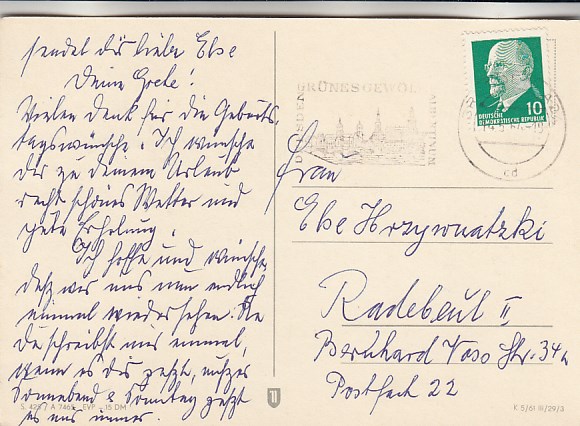 sendet dir liebe Else
Deine Grete!
Vielen Dank für die Geburts-
tagswünsche. Ich wünsche
dir zu deinem Urlaub
recht schönes Wetter und
gute Erholung.
Ich hoffe und wünsche,
daß wir uns nun endlich
einmal wiedersehen.
Du schreibst uns einmal,
wenn es dir paßt, außer
Sonnabend & Sonntag paßt
es uns immer.
S. 425 / A 7465 EVP -.15 DM
GRÜNES GEWÖLBE
DRESDEN
ALBERTINUM
10
DEUTSCHE
DEMOKRATISCHE REPUBLIK
cd
Frau
Else Hrzywnatzki
Radebeul II
Bernhard Voss Str. 34a
Postfach 22
K 5/61 III/29/3